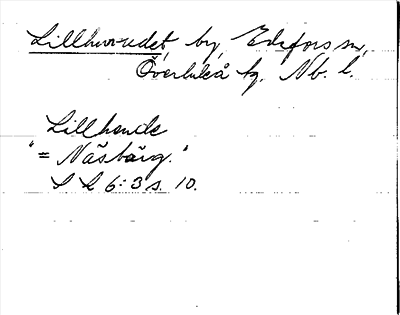 Lillhuvudet, by, Edefors sn,
Överluleå tg. Nb. l.
Lillhende
"= Näsbärg."
S L 6:3 s. 10.